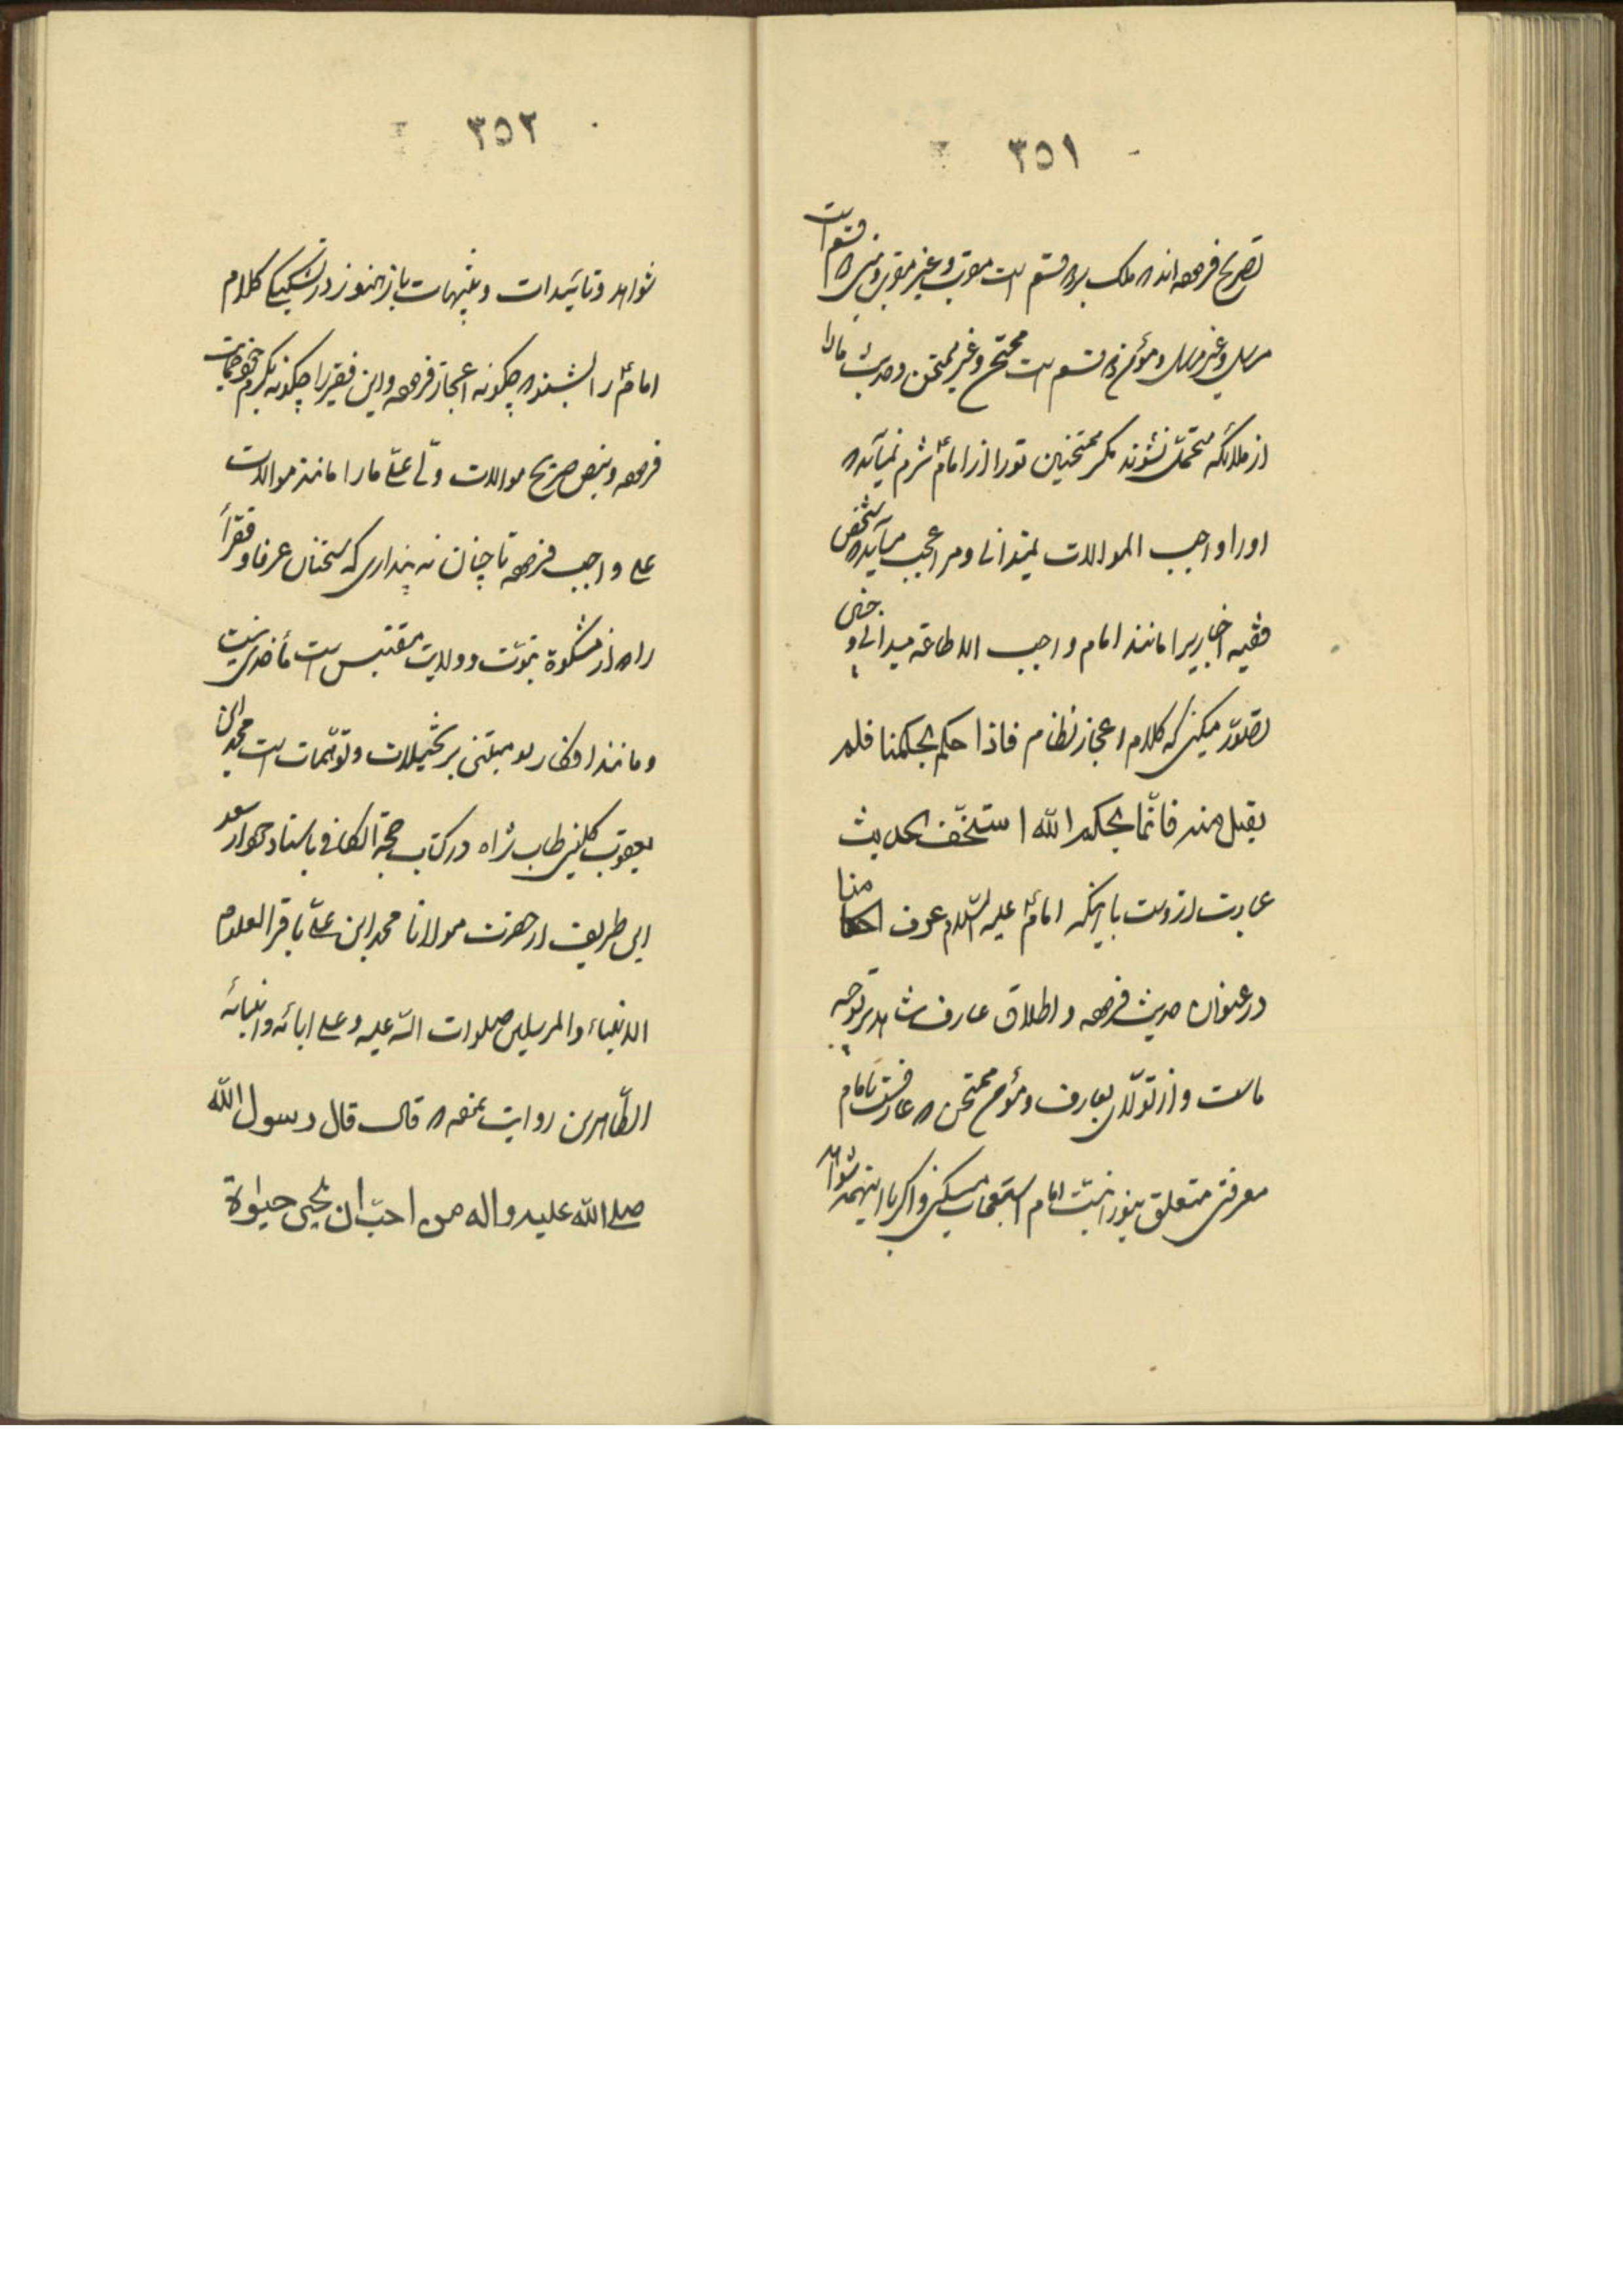 ٣٥١
تصریح فرموده‌اند که ملک بر دو قسم است مقرب و غیر مقرب و نبی دو قسم است
مرسل و غیر مرسل و مؤمن دو قسم است ممتحن و غیر ممتحن و حدیث ما را
از ملائکه متحمل نشوند مگر ممتحنین تو را از امام شرم نمی‌آید که
او را واجب الموالات نمیدانی و مرا عجب می‌آید که شخص
فقیه اخباریرا مانند امام واجب الاطاعه میدانی و چنین
تصور میکنی که کلام اعجاز نظام فاذا حکم بحکمنا فلم
یقبل منه فانّما بحکم الله استخفّ الحدیث
عبارت ازوست با اینکه امام علیه السّلام عرف احکامنا
در عنوان حدیث فرموده و اطلاق عارف شاهد بر توجیه
ماست و از تولّای بعارف و مؤمن ممتحن که عارفست بامام
معرفتی متعلق بنورانیّت امام استعجاب میکنی و اگر با اینهمه شواهد
٣٥٢
شواهد و تائیدات و تنبیهات باز هنوز در تشکیکی کلام
امام را بشنو که چگونه اعجاز فرموده و این فقیر را چگونه مکرم
فرموده و بنص صریح موالات ولّی علی ما را مانند موالات
علی واجب فرموده تا چنان نه پنداری که سخنان عرفا و فقرا
راه از مشکوة نبوّت و ولایت مقتبس است مأخذی نیست
و مانند افکار تو مبتنی بر تخیلات و توهّمات است محمد ابن
یعقوب کلینی طاب ثراه در کتاب حجة الکافی باسناد خود از سعد
ابن طریف از حضرت مولانا محمد ابن علی باقر العلوم
الانبیاء والمرسلین صلوات الله علیه و علی ابائه و ابنائه
الطّاهرین روایت نموده که قال قال رسول الله
صلی الله علیه و اله من احبّ ان یحیی حیوة